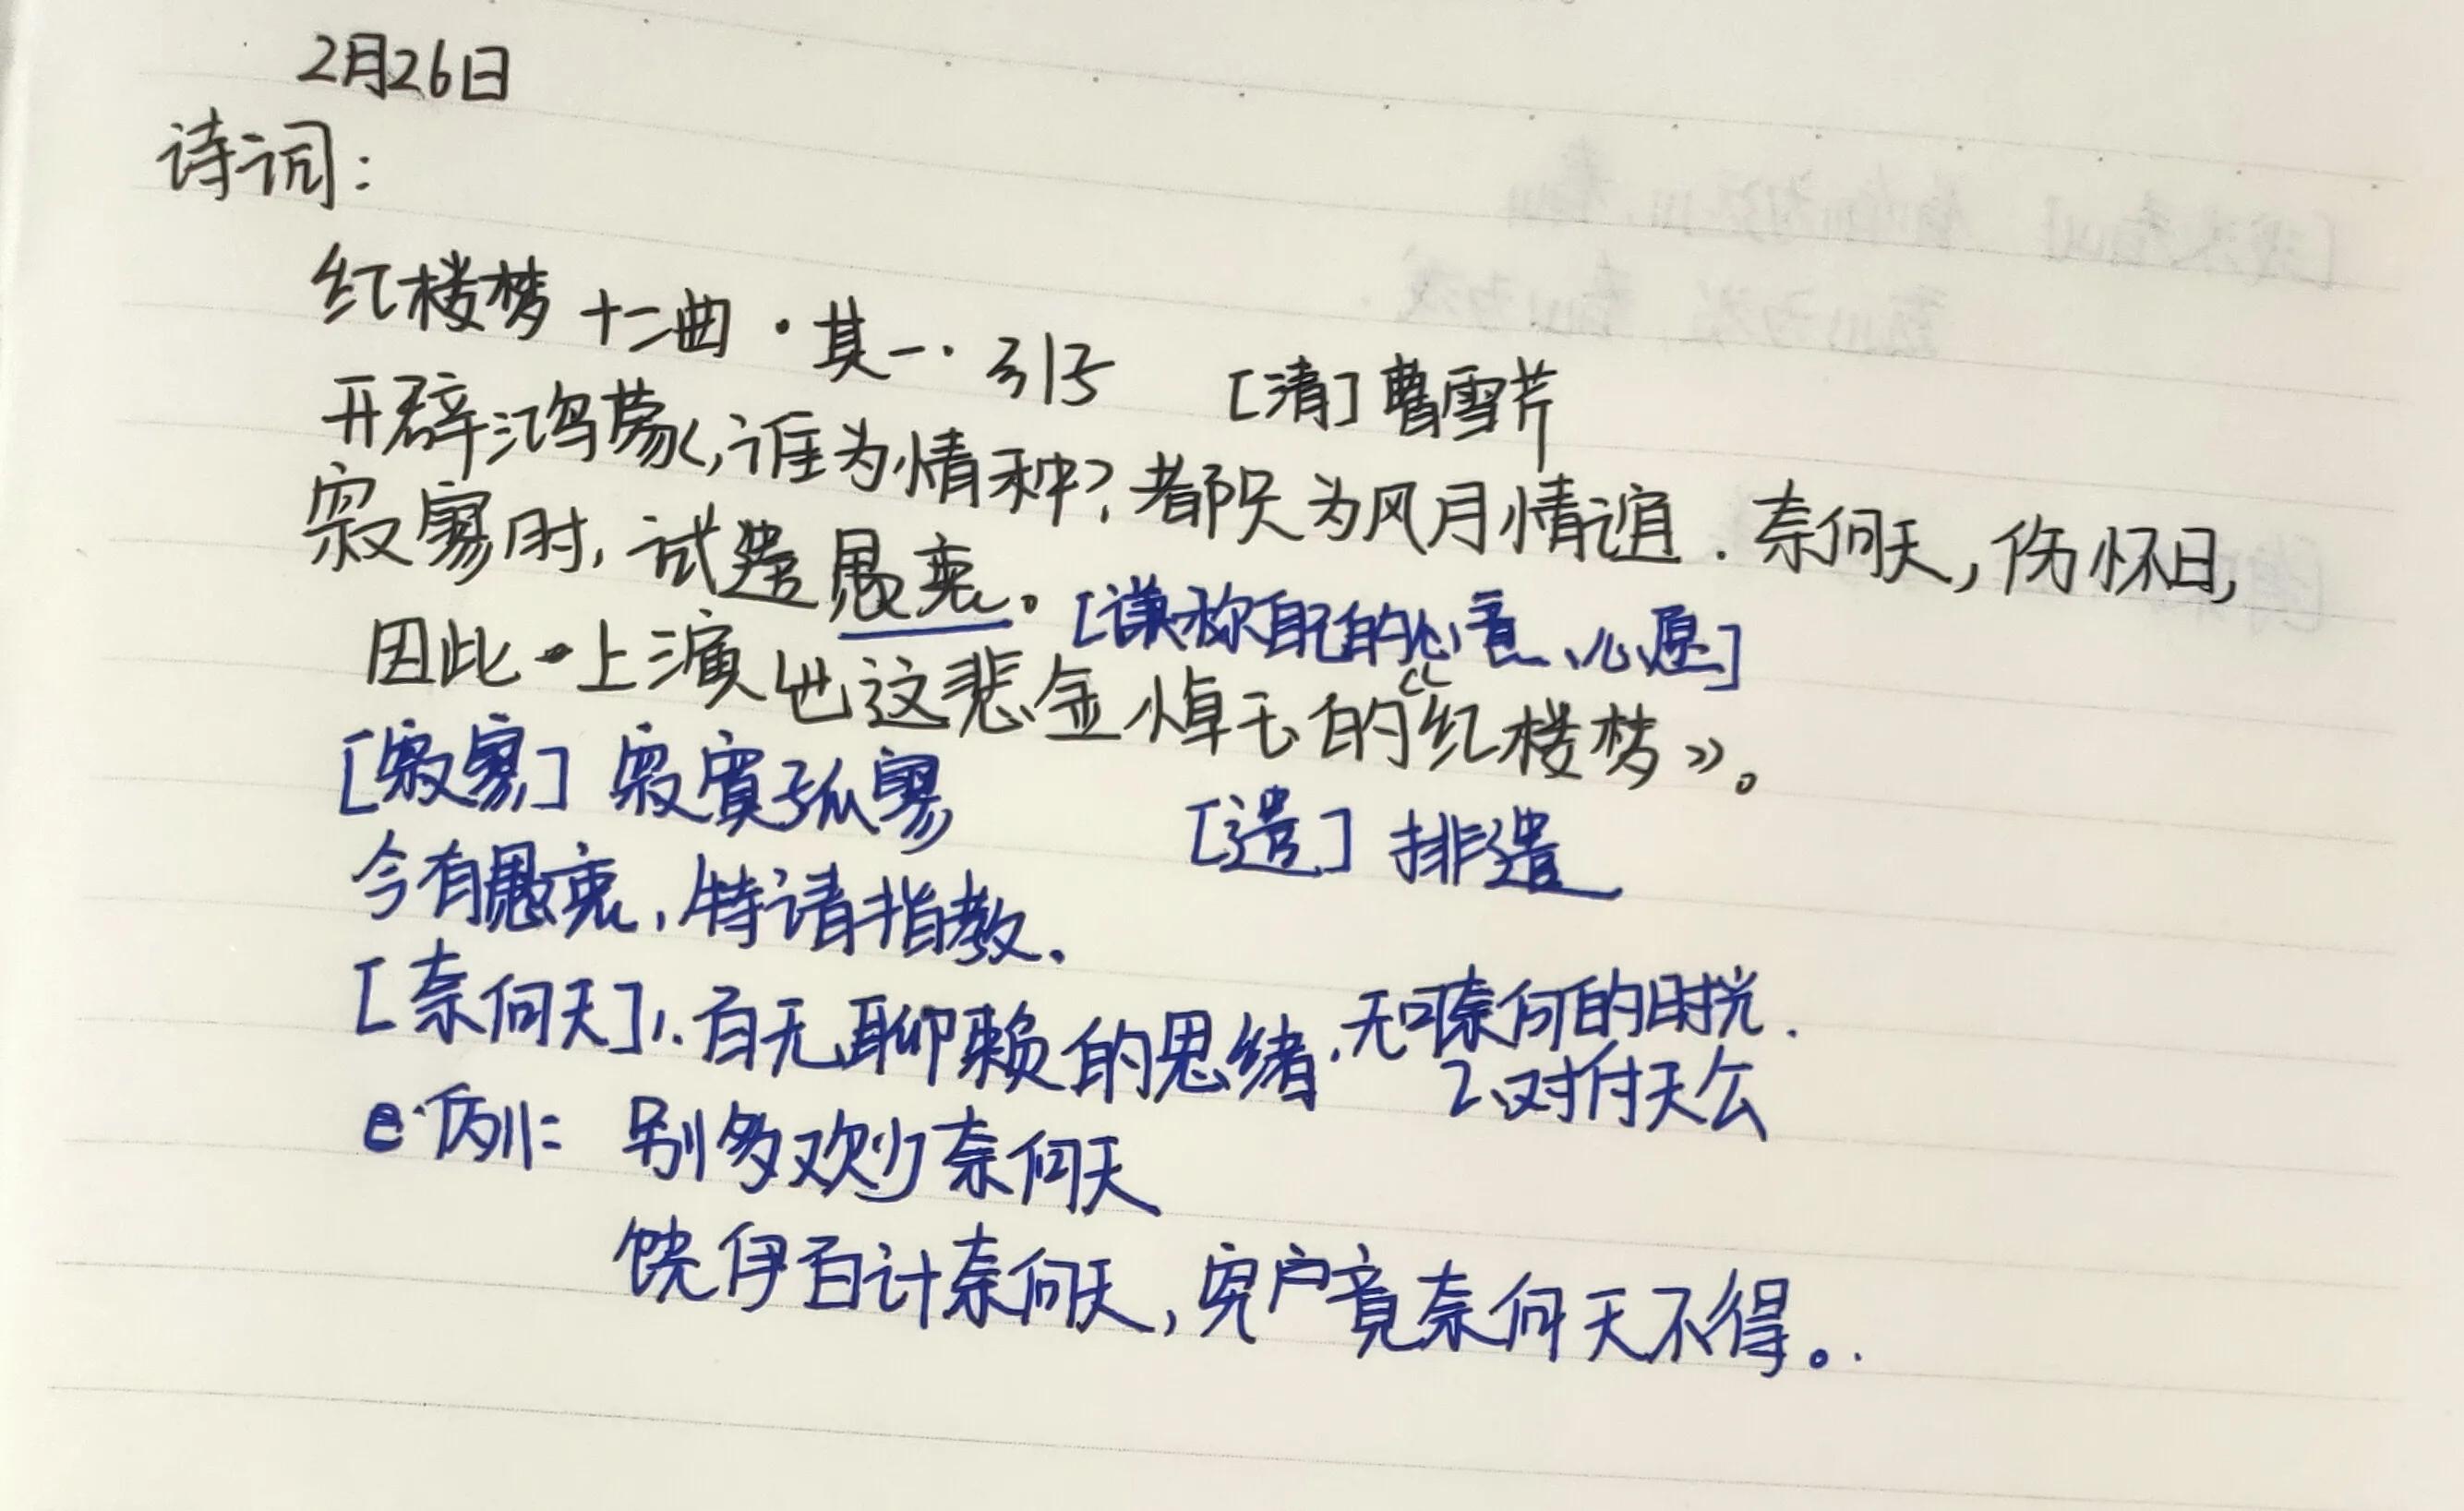 2月26日
诗词:
红楼梦十二曲·其一·引子 [清]曹雪芹
开辟鸿蒙,谁为情种?都只为风月情谊.奈何天,伤怀日,
寂寥时,试遣愚衷。[谦称自己的心意、心愿]
因此上演出这悲金悼玉的《红楼梦》。
[寂寥]寂寞孤寥 [遣]排遣
今有愚衷,特请指教.
[奈何天]1.百无聊赖的思绪.无可奈何的时光.
2、对付天公
e.例:别多欢少奈何天
饶伊百计奈何天,究户竟奈何天不得。.